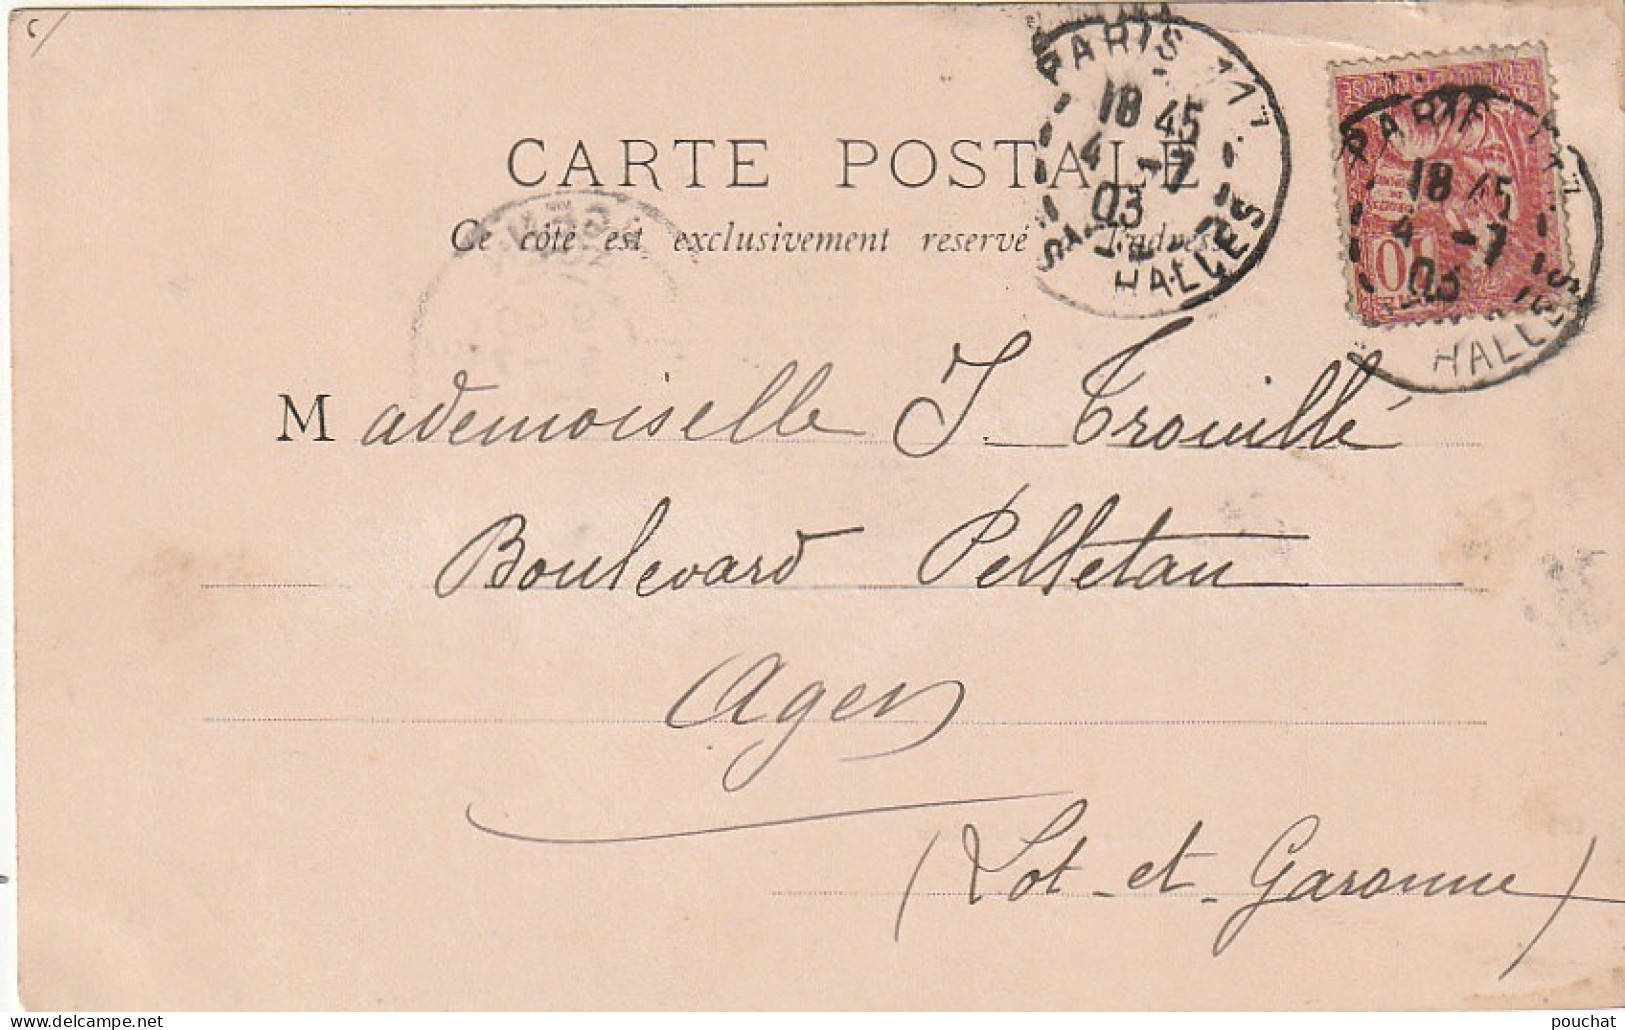 CARTE POSTALE
Ce côté est exclusivement reservé à l'adresse
PARIS
18 45
4 -7
03
HALLES
PARIS
18 45
4 -7
03
HALLES
10
Mademoiselle J. Trouillé
Boulevard Pelletan
Agen
(Lot-et-Garonne)
pouchat